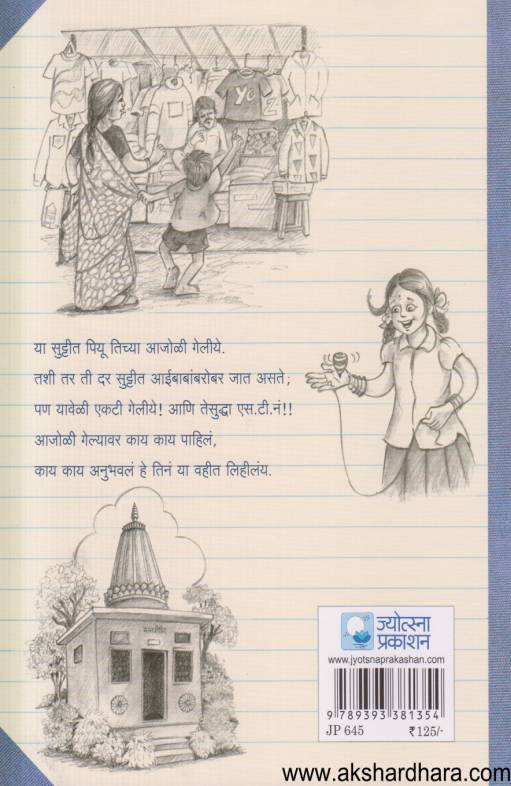 YO
Z
या सुट्टीत पियू तिच्या आजोळी गेलीये.
तशी तर ती दर सुट्टीत आईबाबांबरोबर जात असते;
पण यावेळी एकटी गेलीये! आणि तेसुद्धा एस.टी.नं!!
आजोळी गेल्यावर काय काय पाहिलं,
काय काय अनुभवलं हे तिनं या वहीत लिहीलंय.
ज्योत्स्ना
प्रकाशन
www.jyotsnaprakashan.com
9 789393 381354
JP 645 ₹125/-
www.akshardhara.com